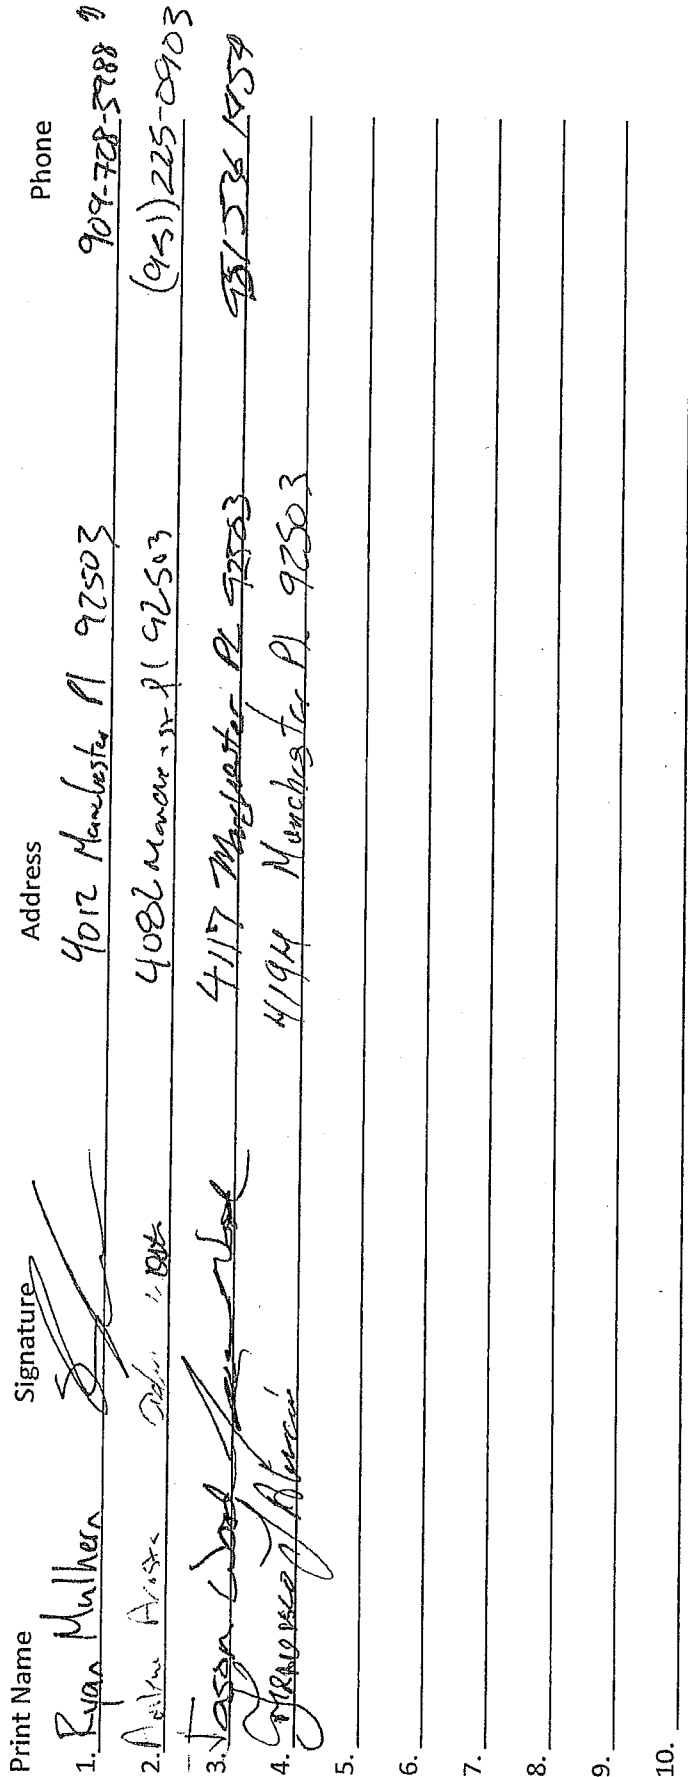 Print Name Signature Address Phone
1. Ryan Mulhern 4012 Manchester Pl 92503 909-728-5988
2. 4082 Pl 92503 (951) 225-0903
3. Jason 4117 Manchester PL 92503 951 536 1454
4. 4194 Manchester PL 92503
5.
6.
7.
8.
9.
10.